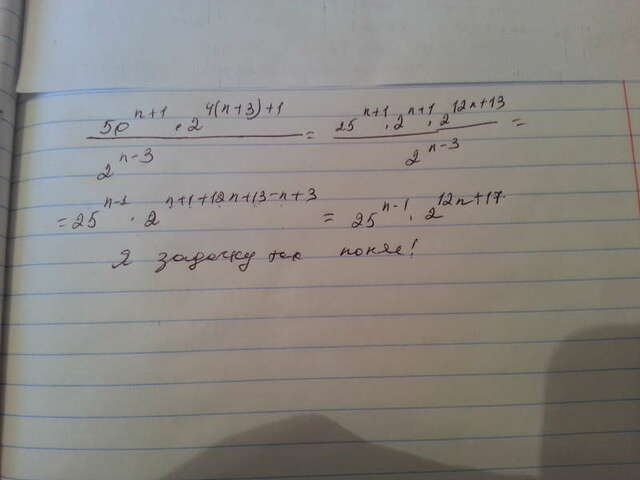 50^{n+1} · 2^{4(n+3)+1} / 2^{n-3} = 25^{n+1} · 2^{n+1} · 2^{12n+13} / 2^{n-3} =
= 25^{n-1} · 2^{n+1+12n+13-n+3} = 25^{n-1} · 2^{12n+17}
Я задачку так понял!